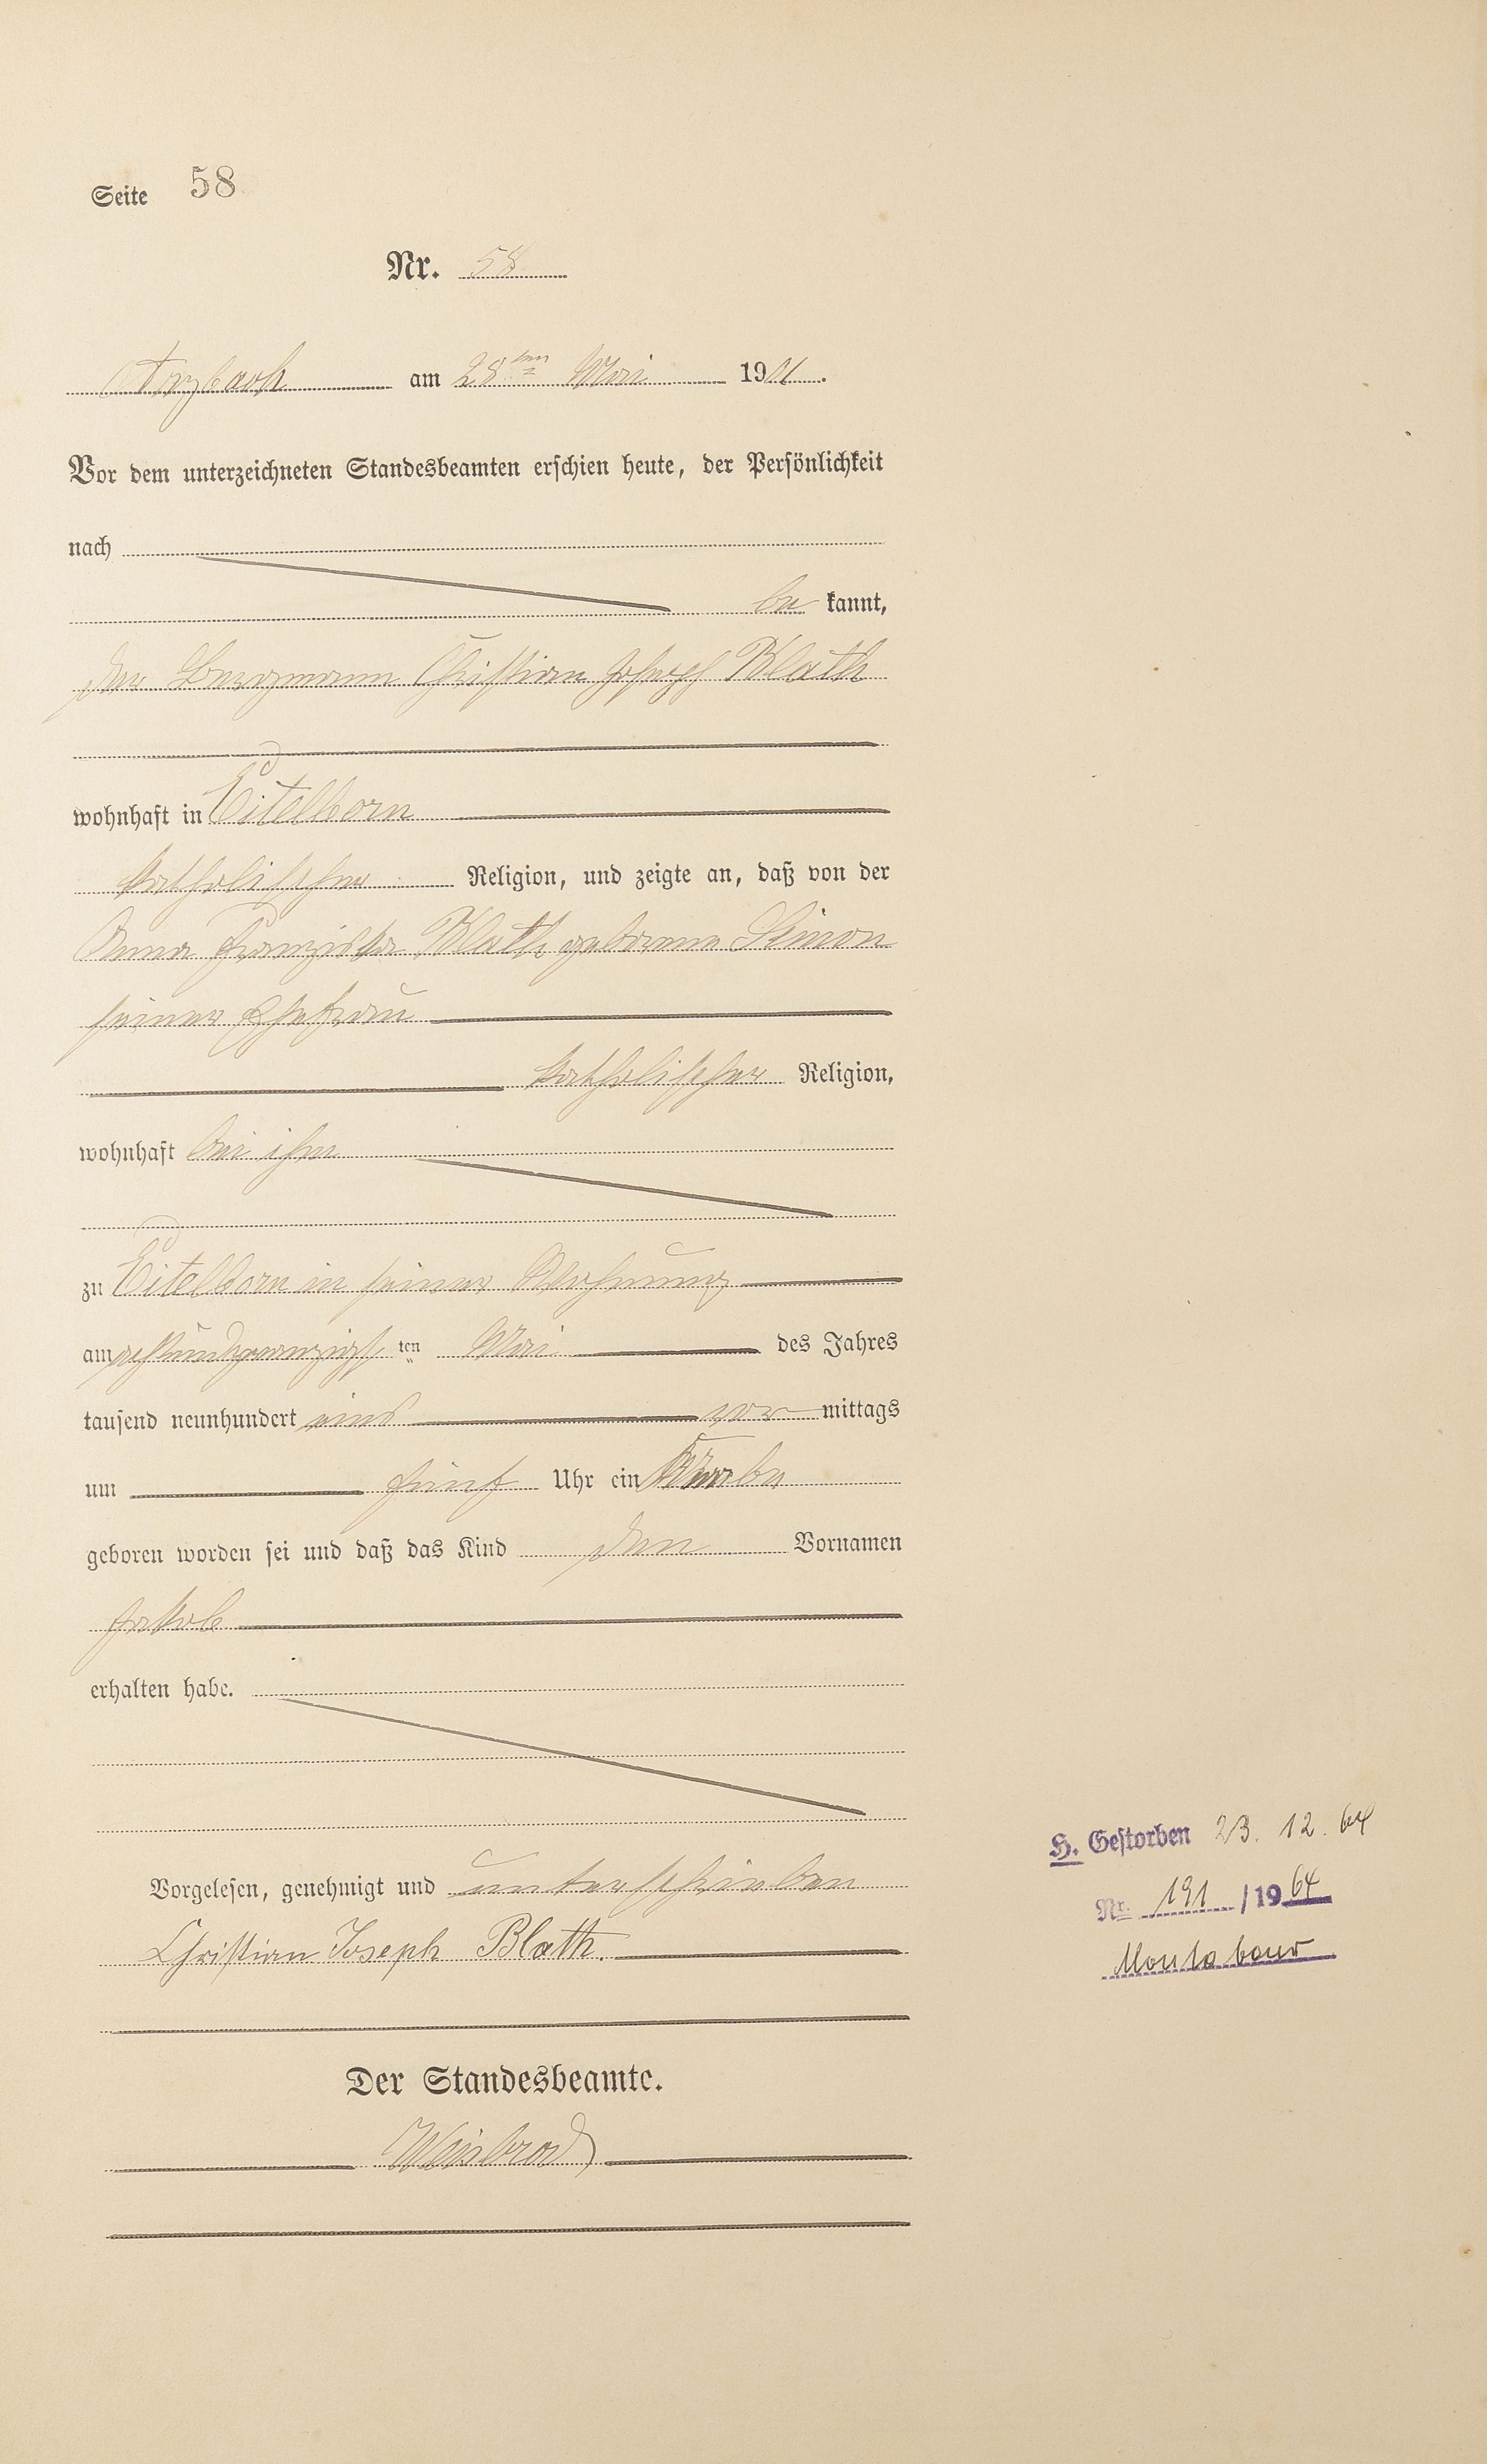 Seite 58
Nr. 58
Arzbach am 28ten Mai 1901.
Vor dem unterzeichneten Standesbeamten erschien heute, der Persönlichkeit
nach
be kannt,
der Bergmann Christian Joseph Blath
wohnhaft in Eitelborn
katholischer Religion, und zeigte an, daß von der
Anna Franziska Blath geborene Simon
seiner Ehefrau
katholischer Religion,
wohnhaft bei ihm
zu Eitelborn in seiner Wohnung
am achtundzwanzigsten Mai des Jahres
tausend neunhundert eins vor mittags
um fünf Uhr ein Knabe
geboren worden sei und daß das Kind den Vornamen
Jakob
erhalten habe.
Vorgelesen, genehmigt und unterschrieben
Christian Joseph Blath.
H. Gestorben 23. 12. 64
Nr. 191 / 1964
Montabaur
Der Standesbeamte.